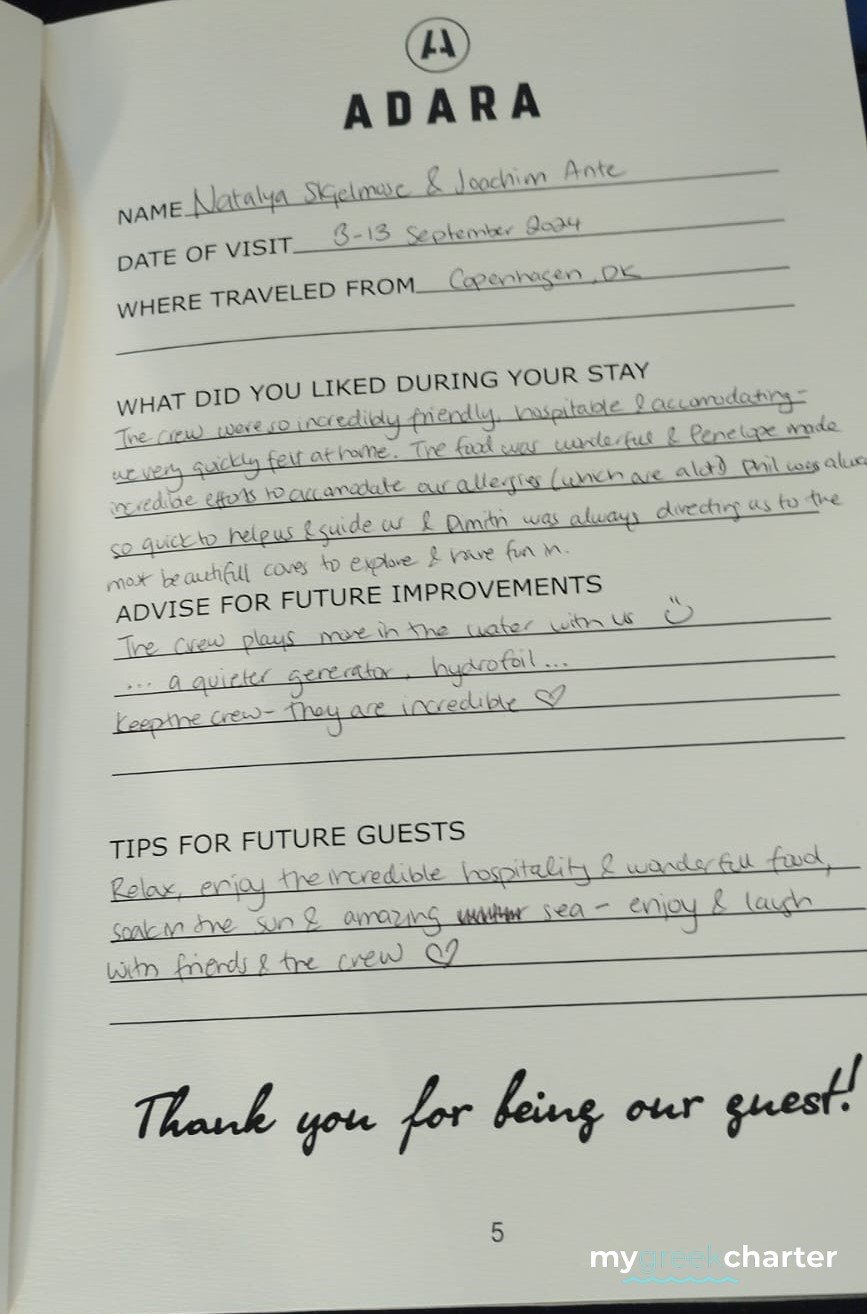 ADARA
NAME Natalya Skjelmose & Joachim Ante
DATE OF VISIT 3-13 September 2024
WHERE TRAVELED FROM Copenhagen, DK
WHAT DID YOU LIKED DURING YOUR STAY
The crew were so incredibly friendly, hospitable & accomodating -
we very quickly felt at home. The food was wonderful & Penelope made
incredible efforts to accamodate our allergies (which are alot!) Phil was
so quick to help us & guide us & Dimitri was always directing us to the
most beautifull coves to explore & have fun in.
ADVISE FOR FUTURE IMPROVEMENTS
The crew plays more in the water with us
... a quieter generator, hydrofoil...
Keep the crew - they are incredible ♡
TIPS FOR FUTURE GUESTS
Relax, enjoy the incredible hospitality & wonderfull food,
soak in the sun & amazing sea - enjoy & laugh
with friends & the crew ♡
Thank you for being our guest!
5
mygreekcharter